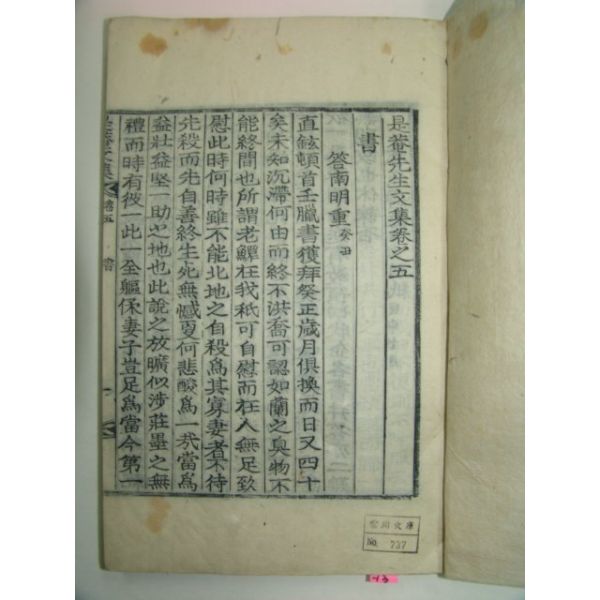 是菴先生文集卷之五
書
答南明重 癸丑
直鉉頓首壬臘書獲拜癸正歲月俱換而日又四十
矣未知沉滯何由而終不洪喬可認如蘭之臭物不
能終間也所謂老鱓枉我秪可自慰而在人無足致
慰此時何時雖不能北地之自殺爲其寡妻者不待
先殺而先自善終生死無憾更何悲酸爲一哭當爲
益壯益堅一助之地也此說之放曠似涉莊墨之無
禮而時有彼一此一全軀保妻子豈足爲當今第一
是菴文集 卷五 書 一
雲川文庫
No. 737
13